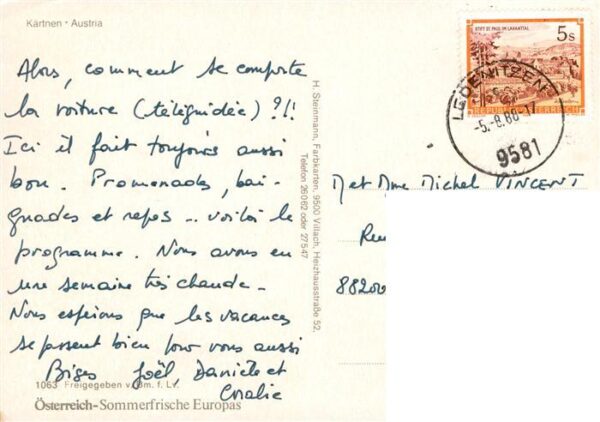 Kärtnen • Austria
Alors, comment se comporte
la voiture (téléguidée) ?!!
Ici il fait toujours aussi
bon. Promenades, bai-
gnades et repos... voilà le
programme. Nous avons eu
une semaine très chaude.
Nous espérons que les vacances
se passent bien pour vous aussi
Bises Joël, Danièle et
Coralie
1063 Freigegeben v. Bm. f. Lv.
Österreich-Sommerfrische Europas
H. Steinmann, Farbkarten, 9500 Villach, Heizhausstraße 52,
Telefon 26062 oder 27547
STIFT ST. PAUL IM LAVANTTAL
5s
REPUBLIK ÖSTERREICH
LEDENITZEN
-5.-8.88-17
9581
M et Mme Michel VINCENT
Rue
88200